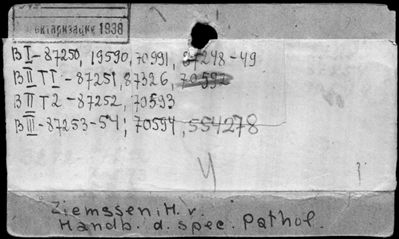 1938
B I - 87250, 19590, 70991, 37248-49
B II T I - 87251, 87326, 70592
B II T 2 - 87252, 70593
B III - 87253-54, 70594, 554278
Ziemssen, H. v.
Handb. d. spec. Pathol.